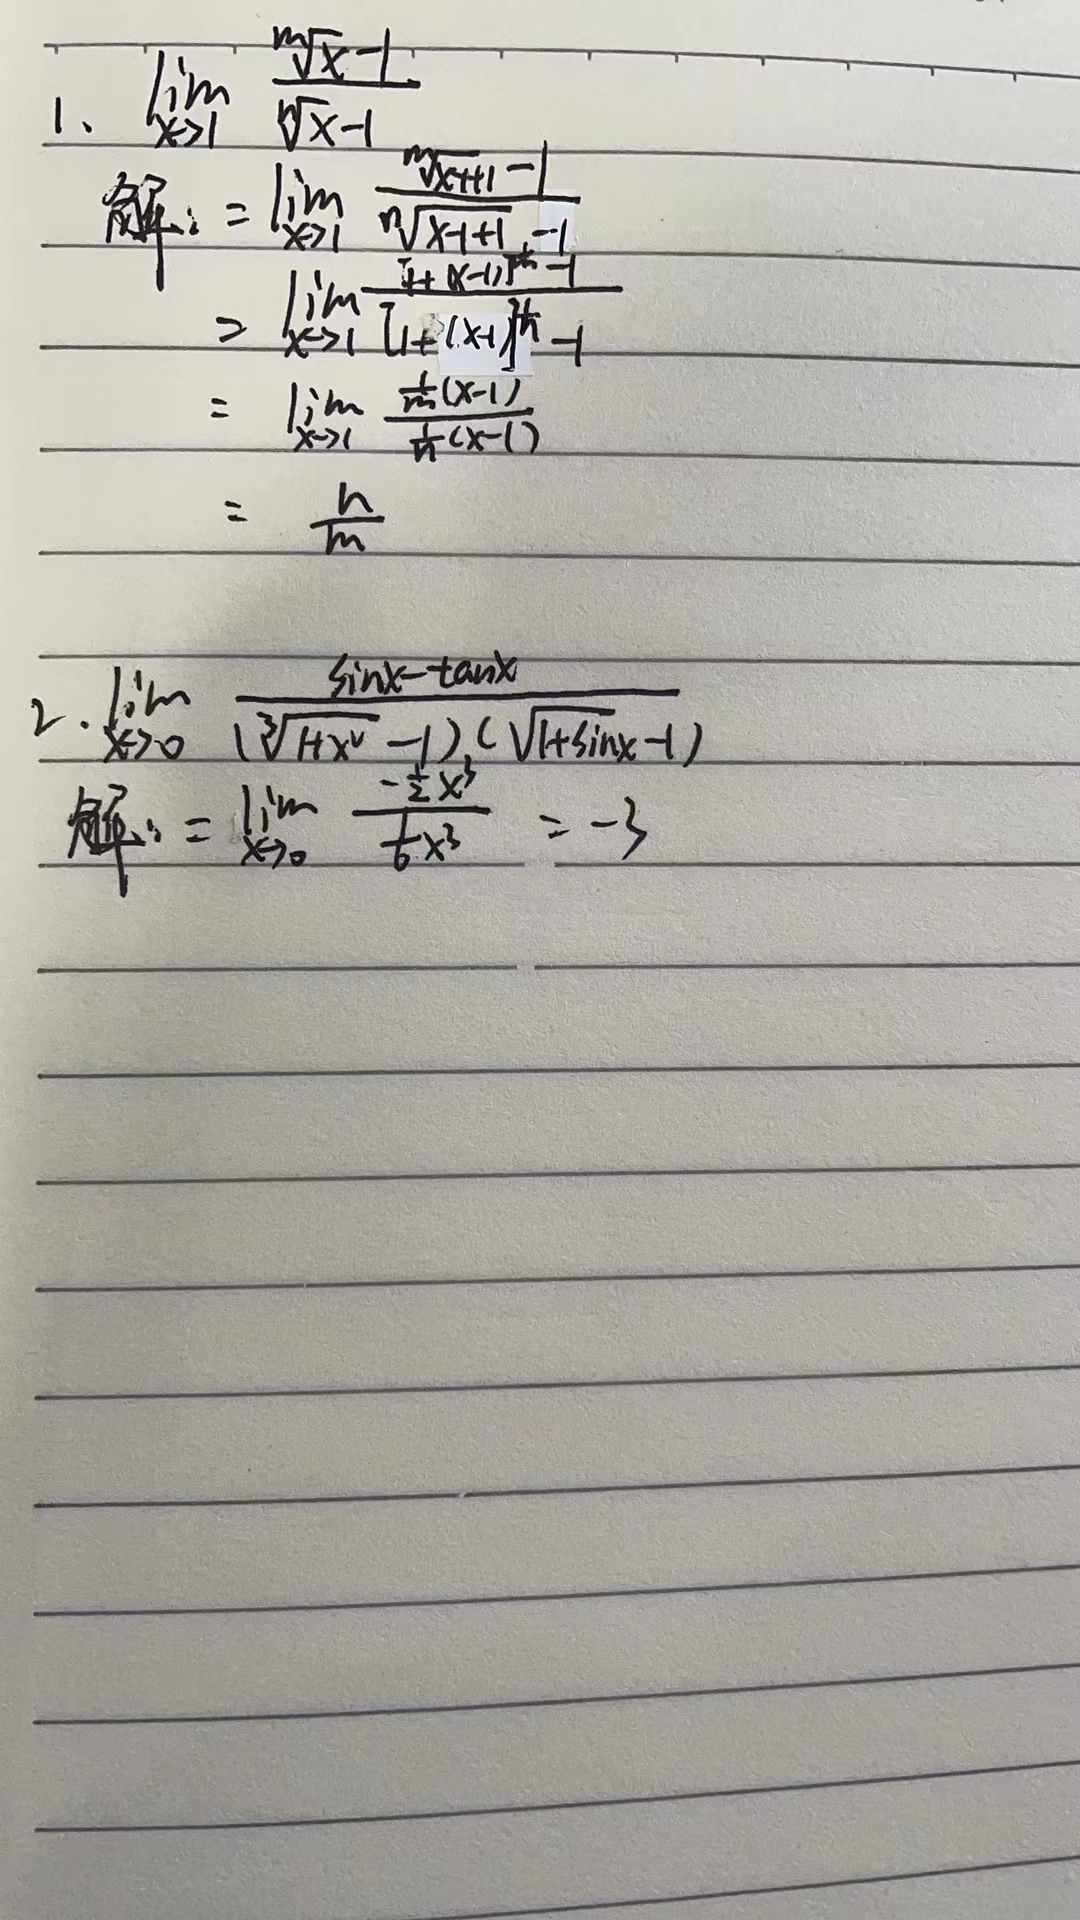 1. lim_{x→1} \frac{\sqrt[m]{x}-1}{\sqrt[n]{x}-1}
解: = lim_{x→1} \frac{\sqrt[m]{x-1+1}-1}{\sqrt[n]{x-1+1}-1}
= lim_{x→1} \frac{[1+(x-1)]^{\frac{1}{m}}-1}{[1+(x-1)]^{\frac{1}{n}}-1}
= lim_{x→1} \frac{\frac{1}{m}(x-1)}{\frac{1}{n}(x-1)}
= \frac{n}{m}
2. lim_{x→0} \frac{sinx-tanx}{(\sqrt[3]{1+x^2}-1)(\sqrt{1+sinx}-1)}
解: = lim_{x→0} \frac{-\frac{1}{2}x^3}{\frac{1}{6}x^3} = -3